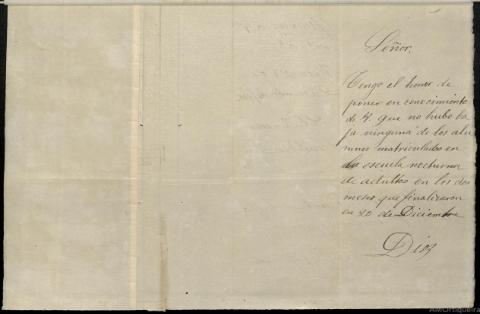 Señor.
Tengo el honor de
poner en conocimiento
de V. que no hubo ba
ja ninguna de los alu
mnos matriculados en
la escuela nocturna
de adultos en los dos
meses que finalizaron
en 20 de Diciembre
Dios